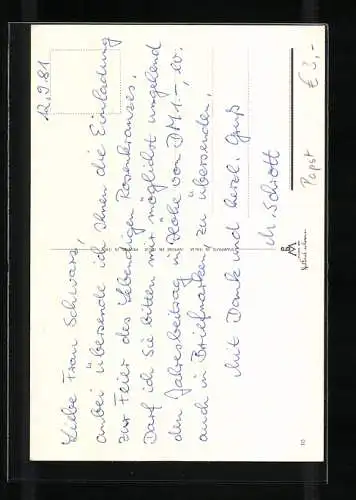 12.9.81
Liebe Frau Schwarz,
anbei übersende ich Ihnen die Einladung
zur Feier des Lebendigen Rosenkranzes.
Darf ich Sie bitten mir möglichst umgehend
den Jahresbeitrag in Höhe von DM 1.-, ev.
auch in Briefmarken, zu übersenden.
Mit Dank und herzl. Gruß
Ihr Schrott
Papst € 3,-
10